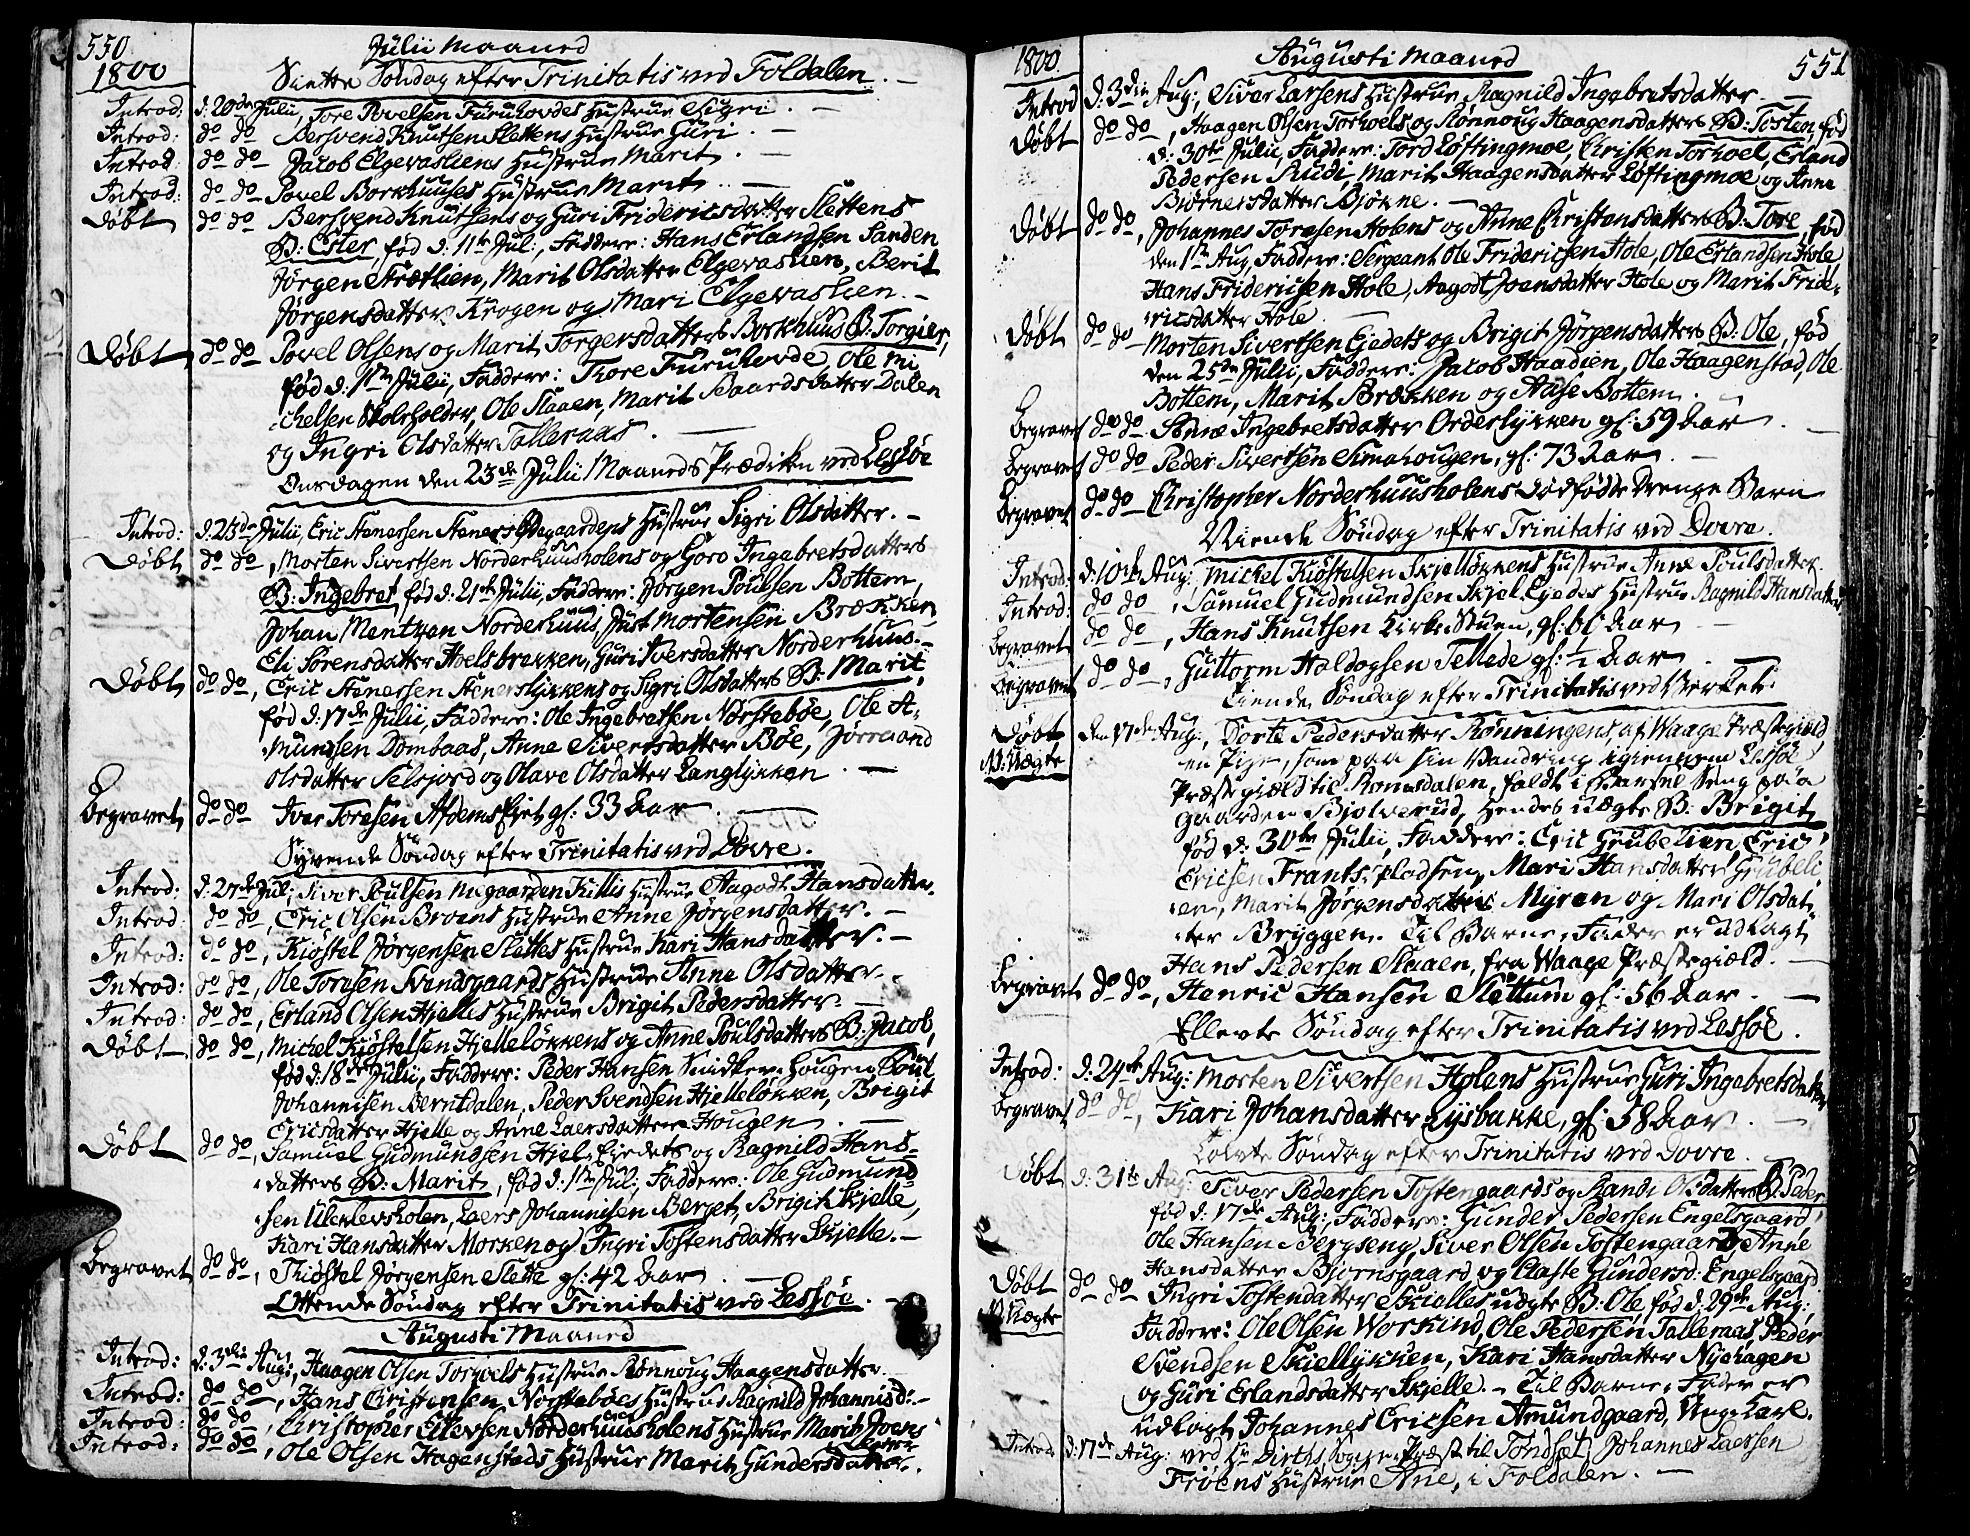 550
Julii Maaned
1800
Siette Søndag efter Trinitatis ved Foldalen.
Introd: d: 20de Julii, Tore Povelsen Furuhovdes Hustrue Sigri.
Introd: do do Bersvend Knutsen Slettens Hustrue Guri.
Introd: do do Jacob Elgevasliens Hustrue Marit
Introd: do do Povel Borkhuuses Hustrue Marit
Døbt do do Bersvend Knutsens og Guri Fridericsdatter Slettens
B: Ester, fød d: 11te Jul:, Faddere: Hans Erlandsen Sanden
Jørgen Strætlien, Marit Olsdatter Elgevaslien, Berit
Jørgensdatter Krogen og Mari Elgevaslien.
Døbt do do Povel Olsens og Marit Torgersdatters Borkhuus B: Torgier,
fød d: 1ste Julii, Faddere: Thore Furuhovde, Ole Mi
chelsen Stolsholder, Ole Slaaen, Marit Baardsdatter Dalen
og Ingri Olsdatter Talleraas.
Onsdagen den 23de Julii Maaneds Prædiken ved Lessøe
Introd: d: 23de Julii, Eric Stenersen Stenersødegaardens Hustrue Sigri Olsdatter.
Døbt do do, Morten Sivertsen Norderhuusholens og Goro Ingebretsdatters
B: Ingebret, fød d: 21de Julii, Faddere: Jørgen Poulsen Bottem,
Johan Mentzan Norderhuus, Just Mortensen Brækken,
Eli Sørensdatter Hoelsbrekken, Guri Iversdatter Norderhuus.
Døbt do do, Eric Stenersen Stenerslykkens og Sigri Olsdatters B: Marit,
fød d: 17de Julii, Faddere: Ole Ingebretsen Nørstebøe, Ole A-
mundsen Dombaas, Anne Sivertsdatter Bøe, Jørraand
Olsdatter Selsjord og Olave Olsdatter Langlykken.
Begravet do do Iver Toresen Afdems Ejet gl: 33 Aar.
Syvende Søndag efter Trinitatis ved Dovre.
Introd: d: 27de Jul: Siver Poulsen Megaarden Killis Hustrue Aagodt Hansdatter.
Introd: do do, Eric Olsen Broens Hustrue Anne Jørgensdatter.
Introd: do do, Kiøstel Jørgensen Slettes Hustrue Kari Hansdatter.
Introd: do do, Ole Toresen Svendsgaards Hustrue Anne Olsdatter.
Introd: do do, Erland Olsen Hjelles Hustrue Brigit Pedersdatter.
Døbt do do, Michel Kiøstelsen Hjelleløkkens og Anne Poulsdatters B: Jacob,
fød d: 18de Julii, Faddere: Peder Hansen Snidker Hougen Poul
Johannisen Berntdalen, Peder Svendsen Hjelleløkken, Brigit
Ericsdatter Hjelle og Anne Laersdatter Hougen.
Døbt do do, Samuel Gudmundsen Hjel-Ejedets og Ragnild Hans-
datters B: Marit, fød d: 1ste Jul:, Faddere: Ole Gudmund
sen Uleklevsholen, Laers Johannisen Berget, Brigit Skjelle,
Kari Hansdatter Morken og Ingri Tostensdatter Skjelle.
Begravet do do, Thiøstel Jørgensen Slette gl: 42 Aar.
Ottende Søndag efter Trinitatis ved Lessøe.
Augusti Maaned
Introd: d: 3die Aug:, Haagen Olsen Torhoels Hustrue Rønnoug Haagensdatter.
Introd: do do, Hans Christensen Norstebøes Hustrue Ragnild Johannisd:
Introd: do do, Christopher Ellevsen Norderhuusholens Hustrue Marit Joens
datter
Introd: do do, Ole Olsen Hagenstads Hustrue Marit Gundersdatter.
1800
Augusti Maaned
551
Introd d: 3die Aug:, Siver Larsens Hustrue Ragnild Ingebretsdatter.
Døbt do do, Haagen Olsen Torhoels og Rønnoug Haagensdatters B: Tosten, fød
d: 30te Julii, Faddere: Tord Løftingmoe, Christen Torhoel, Erland
Pedersen Rudi, Marit Haagensdatter Løftingmoe og Anne
Biørnersdatter Bjøkne.
Døbt do do, Johannes Toresen Holens og Anne Christensdatters B: Tore, fød
den 1ste Aug, Faddere: Sergeant Ole Fridericsen Hole, Ole Erlandsen Hole
Hans Fridericsen Hole, Aagodt Joensdatter Hole og Marit Fride-
ricsdatter Hole.
Døbt do do Morten Sivertsen Ejedets og Brigit Jørgensdatters B: Ole, fød
den 25de Julii, Faddere: Jacob Haadien, Ole Haagenstad, Ole
Bottem, Marit Brækken og Aase Bottem.
Begravet do do Anne Ingebretsdatter Orderlykken gl: 59 Aar
Begravet do do Peder Sivertsen Simahougen, gl: 73 Aar.
Begravet do do Christopher Norderhuusholens dødfødte Drenge Barn
Niende Søndag efter Trinitatis ved Dovre.
Introd: d: 10de Aug:, Michel Kiøstelsen Skjelløkkens Hustrue Anne Poulsdatter.
Introd: do do, Samuel Gudmundsen Skjel Ejedes Hustrue Ragnild Hansdatter
Begravet do do, Hans Knutsen Kirke Stuen, gl: 60 Aar
Begravet do do, Guttorm Haldogsen Tellede gl: 1/2 Aar
Tiende Søndag efter Trinitatis ved Verket.
Døbt den 17de Aug:, Dorte Pedersdatter Rønningens, af Waage Præstegield,
N: Uægte en Pige, som paa sin Vandring igiennem Lessøe
Præstegield til Romsdalen, faldt i Barsel Seng paa
gaarden Bjolverud, hendes uægte B: Brigit
fød d: 30te Julii, Faddere: Eric Grubelien, Eric
Ericsen Frantspladsen, Mari Hansdatter Grubeli
en, Marit Jørgensdatter Myren og Mari Olsdat
ter Bryggen. Til Barne-Fader er udlagt
Hans Pedersen Slaaen, fra Waage Præstegield.
Begravet do do, Henric Hansen Slettum gl: 56 Aar.
Ellevte Søndag efter Trinitatis ved Lessøe.
Introd: d: 24de Aug: Morten Sivertsen Holens Hustrue Guri Ingebretsdatter
Begravet do do, Kari Johansdatter Lysbakke, gl: 58 Aar.
Tolvte Søndag efter Trinitatis ved Dovre.
Døbt d: 31te Aug: Siver Pedersen Tostengaards og Randi Olsdatters B: Peder
fød d: 17de Aug:, Faddere: Gunder Pedersen Engelsgaard,
Ole Hansen Bergseng, Siver Olsen Tostengaard, Anne
Hansdatter Bjørnsgaard og Claste Gundersd: Engelsgaard.
Døbt do do Ingri Tostendatter Skielles uægte B: Ole, fød d: 29de Aug:
N: Uægte Faddere: Ole Olsen Workind, Ole Pedersen Talleraas, Peder
Svendsen Skiellykken, Kari Hansdatter Nyehagen
og Guri Erlandsdatter Skjelle. Til Barne-Fader er
udlagt Johannes Ericsen Amundgaard, Unge Karl.
Introd: d: 17de Aug: ved Hr Dirths, Sogne-Præst til Tøndset, Johannes Laersen
Frøens Hustrue Ane, i Foldalen.